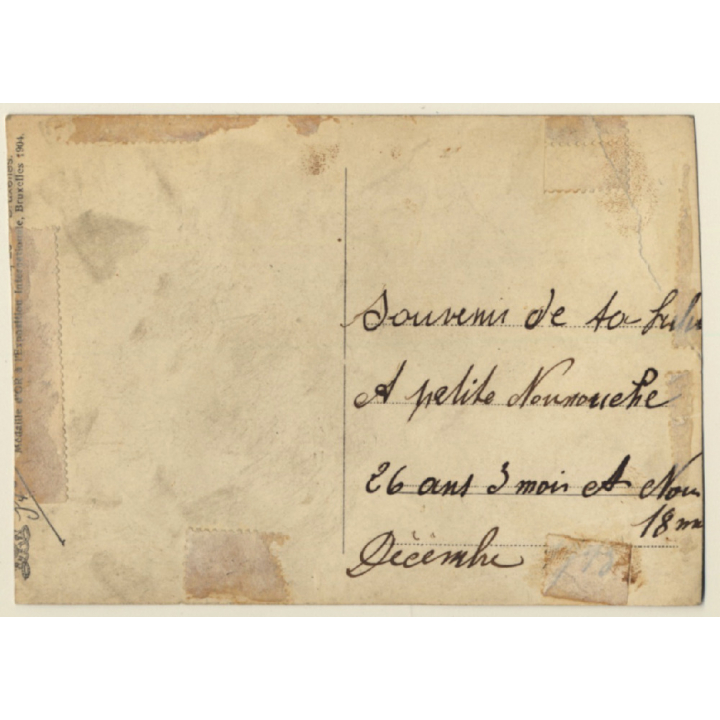 Bruxelles.
Médaille d'OR à l'Exposition Internationale, Bruxelles 1904.
Souvenir de ta
A petite Nounouche
26 ans 3 mois et Nou
18
Décembre